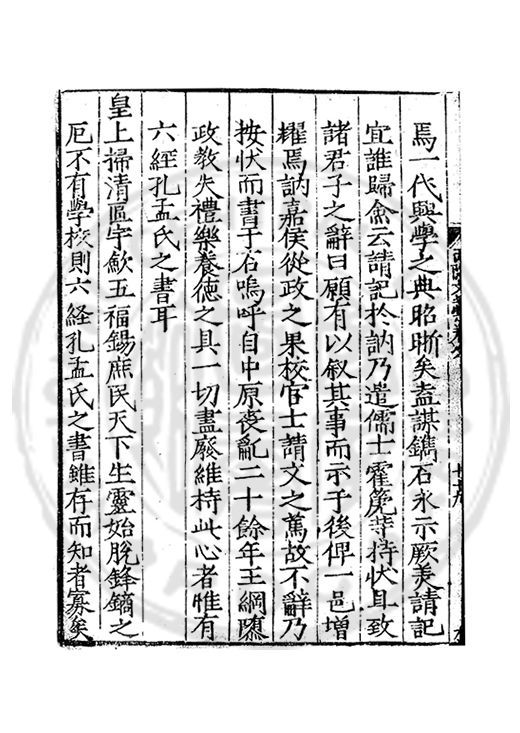 焉一代興學之典昭晰矣盍謀鐫石永示厥美請記
宜誰歸僉云請記於訥乃遣儒士霍筦等持狀且致
諸君子之辭曰顧有以叙其事而示于後俾一邑增
耀焉訥嘉侯從政之果校官士請文之篤故不辭乃
按狀而書于石嗚呼自中原䘮亂二十餘年王綱隳
政教失禮樂養德之具一切盡廢維持此心者惟有
六經孔孟氏之書耳
皇上掃清區宇歛五福錫庶民天下生靈始脫鋒鏑之
厄不有學校則六経孔孟氏之書雖存而知者寡矣